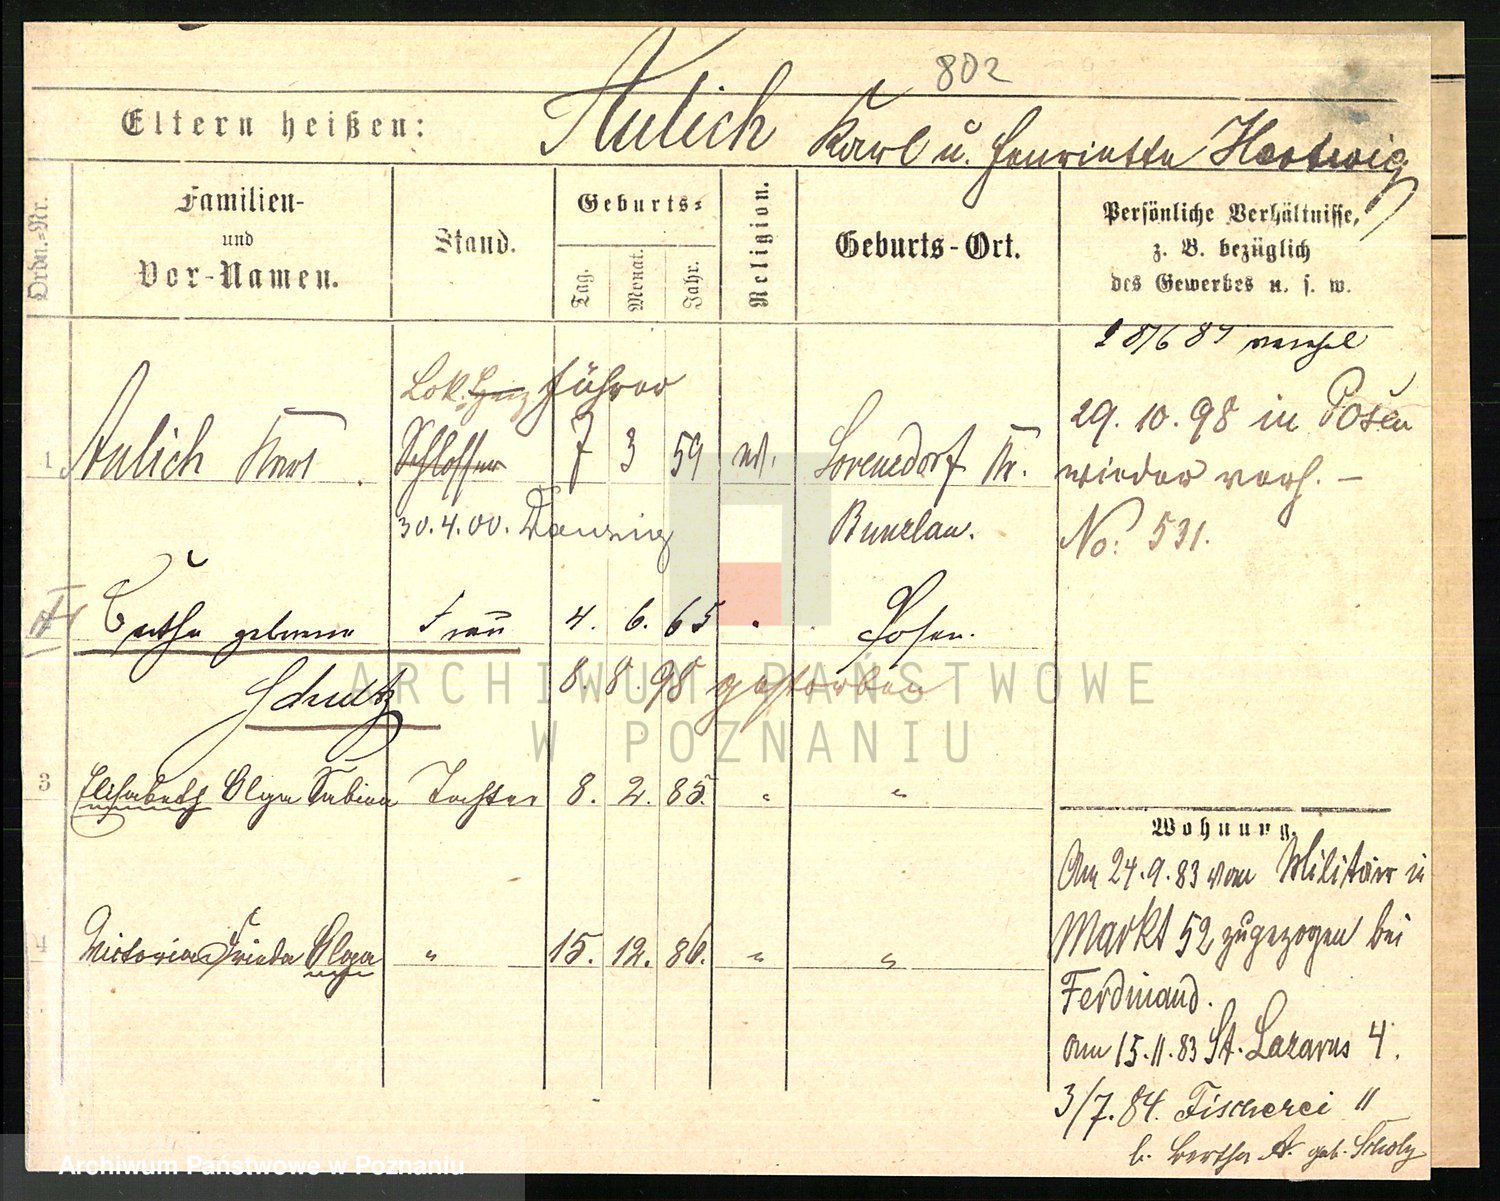 802
Eltern heißen: Aulich Karl u. Henriette Hertwig
Ordn.-Nr.
Familien-
und
Vor-Namen.
Stand.
Geburts-
Tag.
Monat.
Jahr.
Religion.
Geburts-Ort.
Persönliche Verhältnisse,
z. B. bezüglich
des Gewerbes u. s. w.
Lok. führer
29. 10. 98 in Posen
1 Aulich Karl Schlosser 7 3 59 Lorenzdorf Kr.
wieder verh. –
30.4.00. Danzig
Bunzlau.
No. 531.
geborene Frau 4. 6. 65 Posen.
8. 8. 98 gestorben
3 Elisabeth Olga Tochter 8. 2. 85. " "
Wohnung.
Am 24.9.83 vom Militär in
4 Victoria Frieda Olga " 15. 12. 86. " "
Markt 52 zugezogen bei
Ferdinand.
am 15.11.83 St. Lazarus 4.
3/7.84. Fischerei 11
b. Bertha A. geb. Scholz
ARCHIWUM PAŃSTWOWE
W POZNANIU
Archiwum Państwowe w Poznaniu